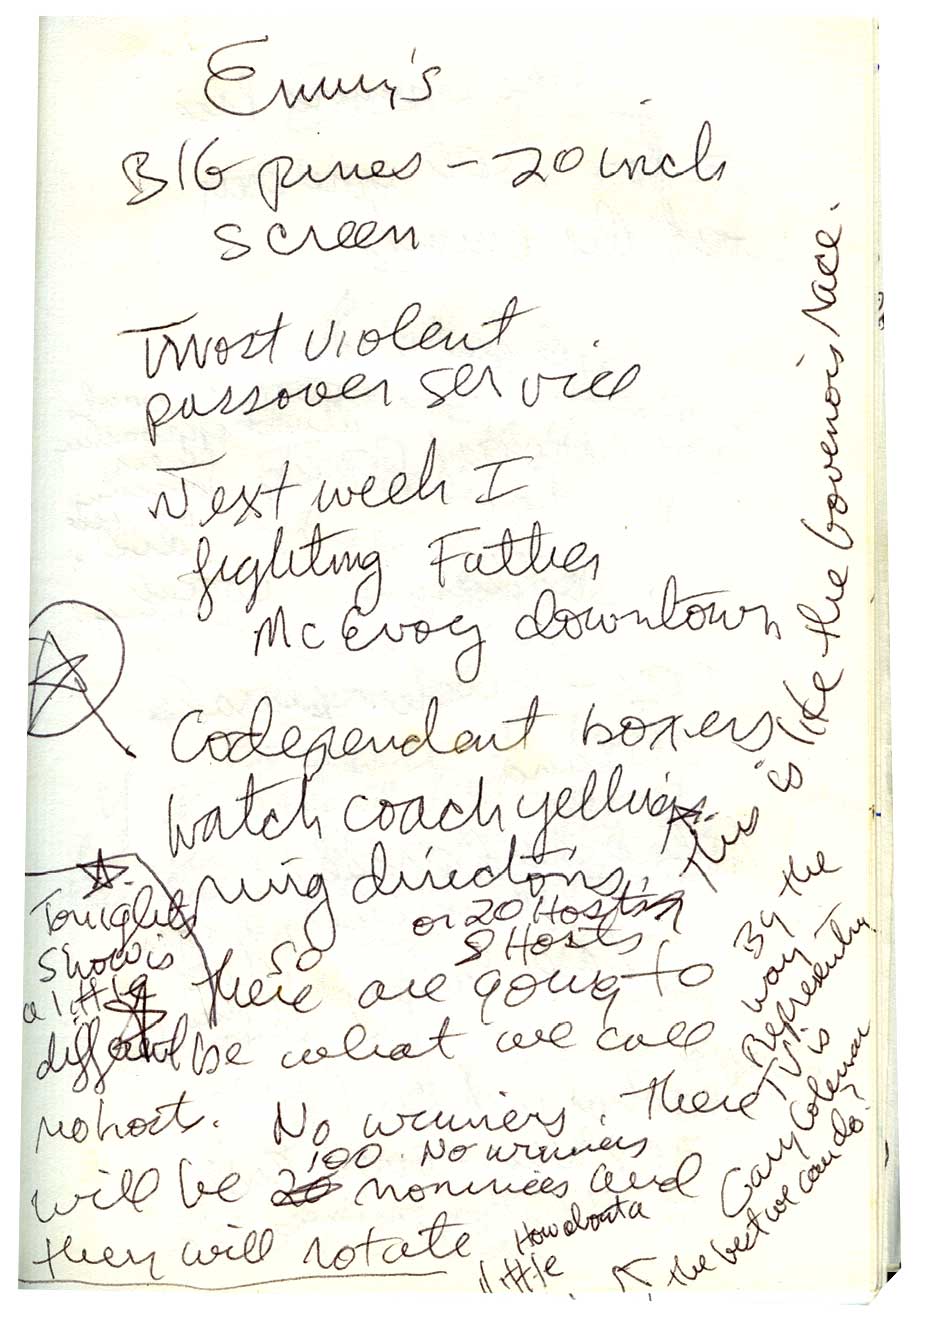 Emmy's
BIG pines - 20 inch
screen
Most violent
passover service
Next week I
fighting Father
McEvoy downtown
Codependent boxers
watch coach yelling
ring directions.
This is like the Governor's Race.
Tonight's
show is
a little
different
or 20 Hosts
So 8 Hosts
there are going to
be what we call
no hosts. No winners. There
will be 100 nominees and
No winners
they will rotate
How about a
little
By the
way
Representing
TV is
Gary Coleman
the best we can do?